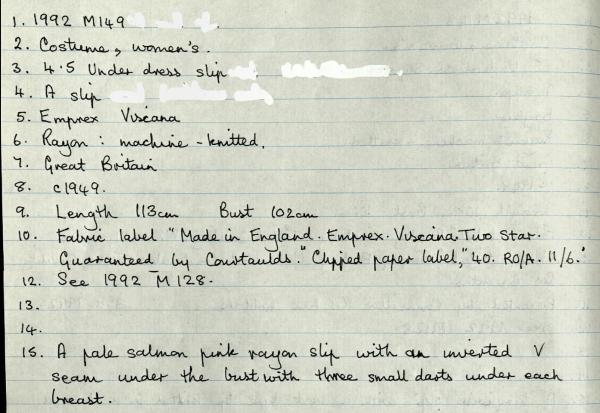 1. 1992 M149
2. Costume, women's.
3. 4.5 Under dress slip
4. A slip
5. Emprex Viscana
6. Rayon : machine-knitted.
7. Great Britain
8. c1949.
9. Length 113cm Bust 102cm
10. Fabric label "Made in England. Emprex. Viscana. Two Star.
Guaranteed by Courtaulds." Clipped paper label, "40. RO/A. 11/6."
12. See 1992 M128.
13.
14.
15. A pale salmon pink rayon slip with an inverted V
seam under the bust with three small darts under each
breast.